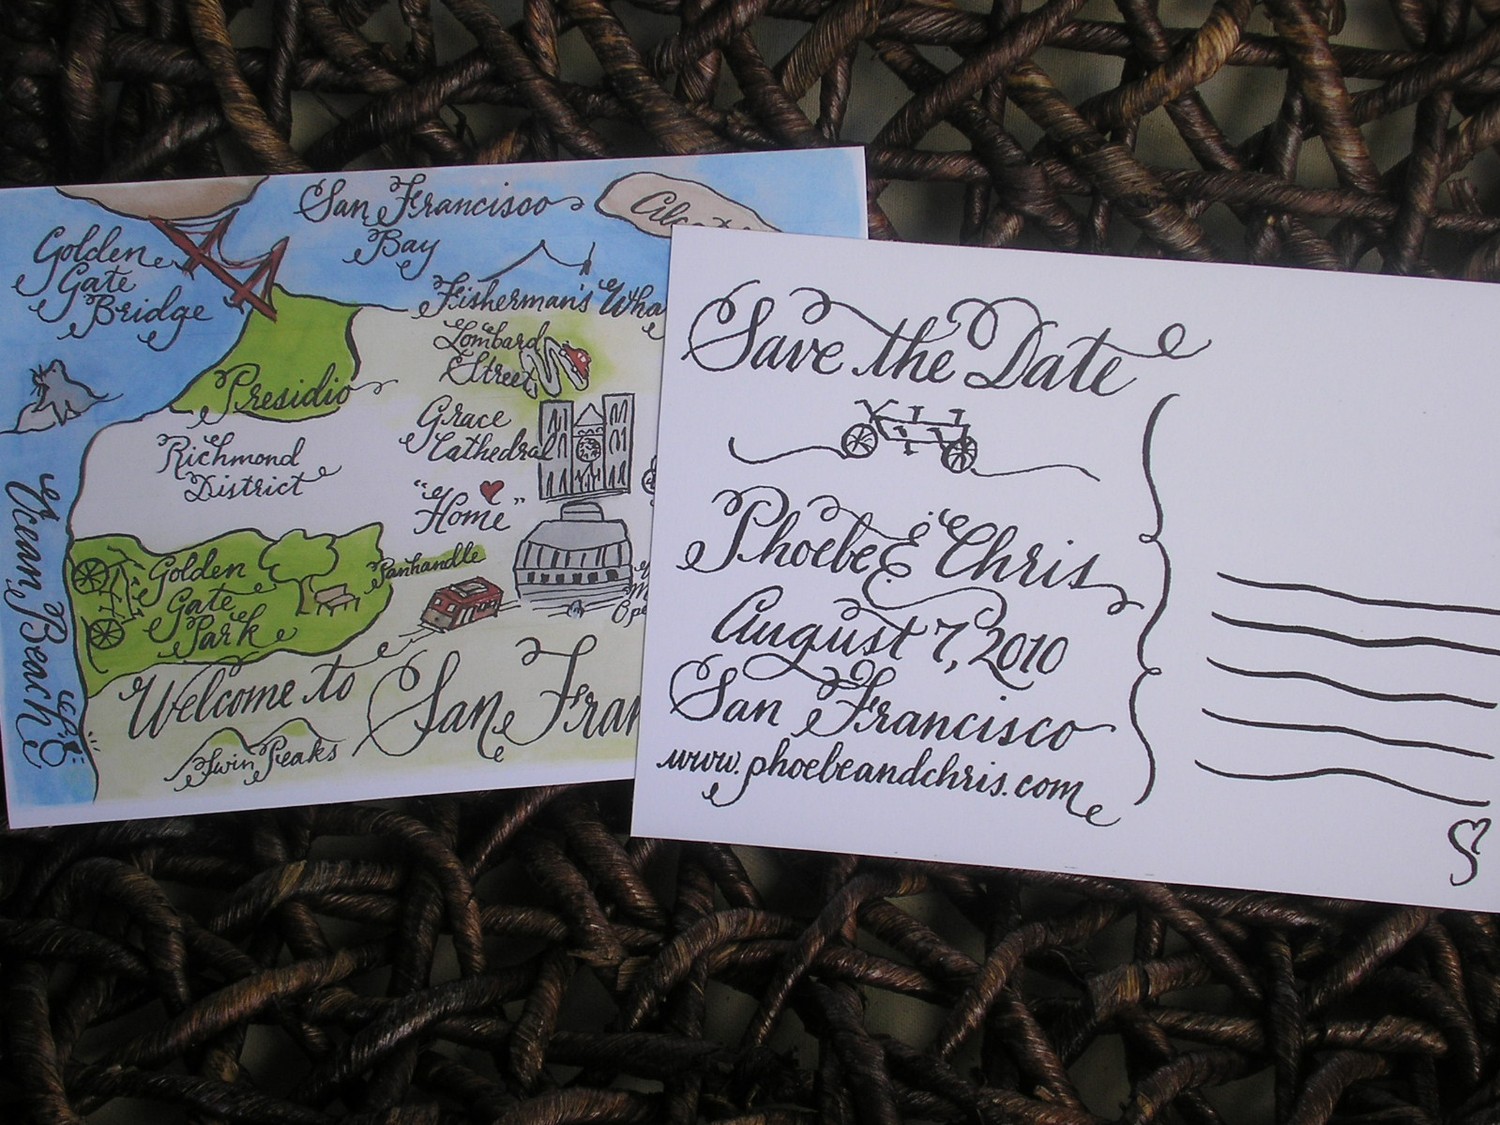 San Francisco
Bay
Golden
Gate
Bridge
Fisherman's
Lombard
Street
Presidio
Grace
Cathedral
Richmond
District
"Home"
Panhandle
Golden
Gate
Park
Ocean Beach
Welcome to San
Twin Peaks
Save the Date
Phoebe & Chris
August 7, 2010
San Francisco
www.phoebeandchris.com